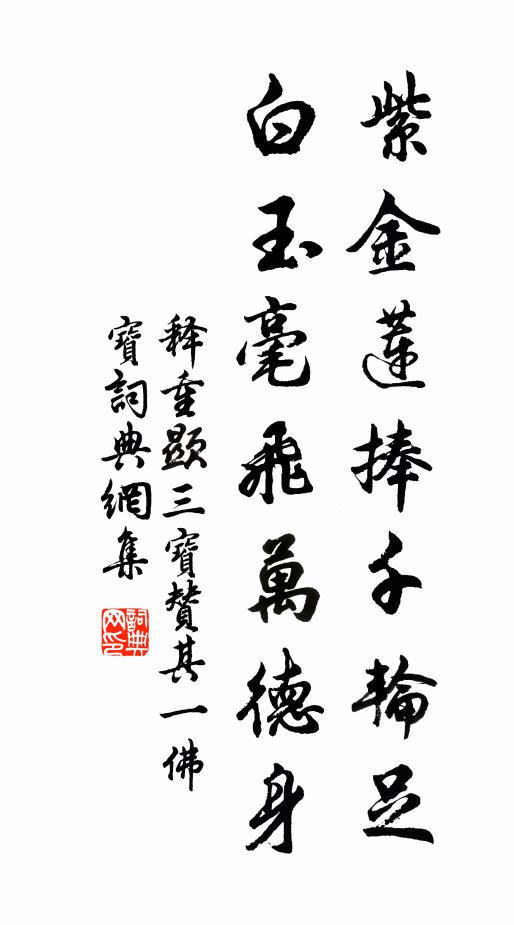 紫金蓮捧千輪足
白玉毫飛萬德身
释重顯三寶贊其一佛
寶詞典網集
詞典网印